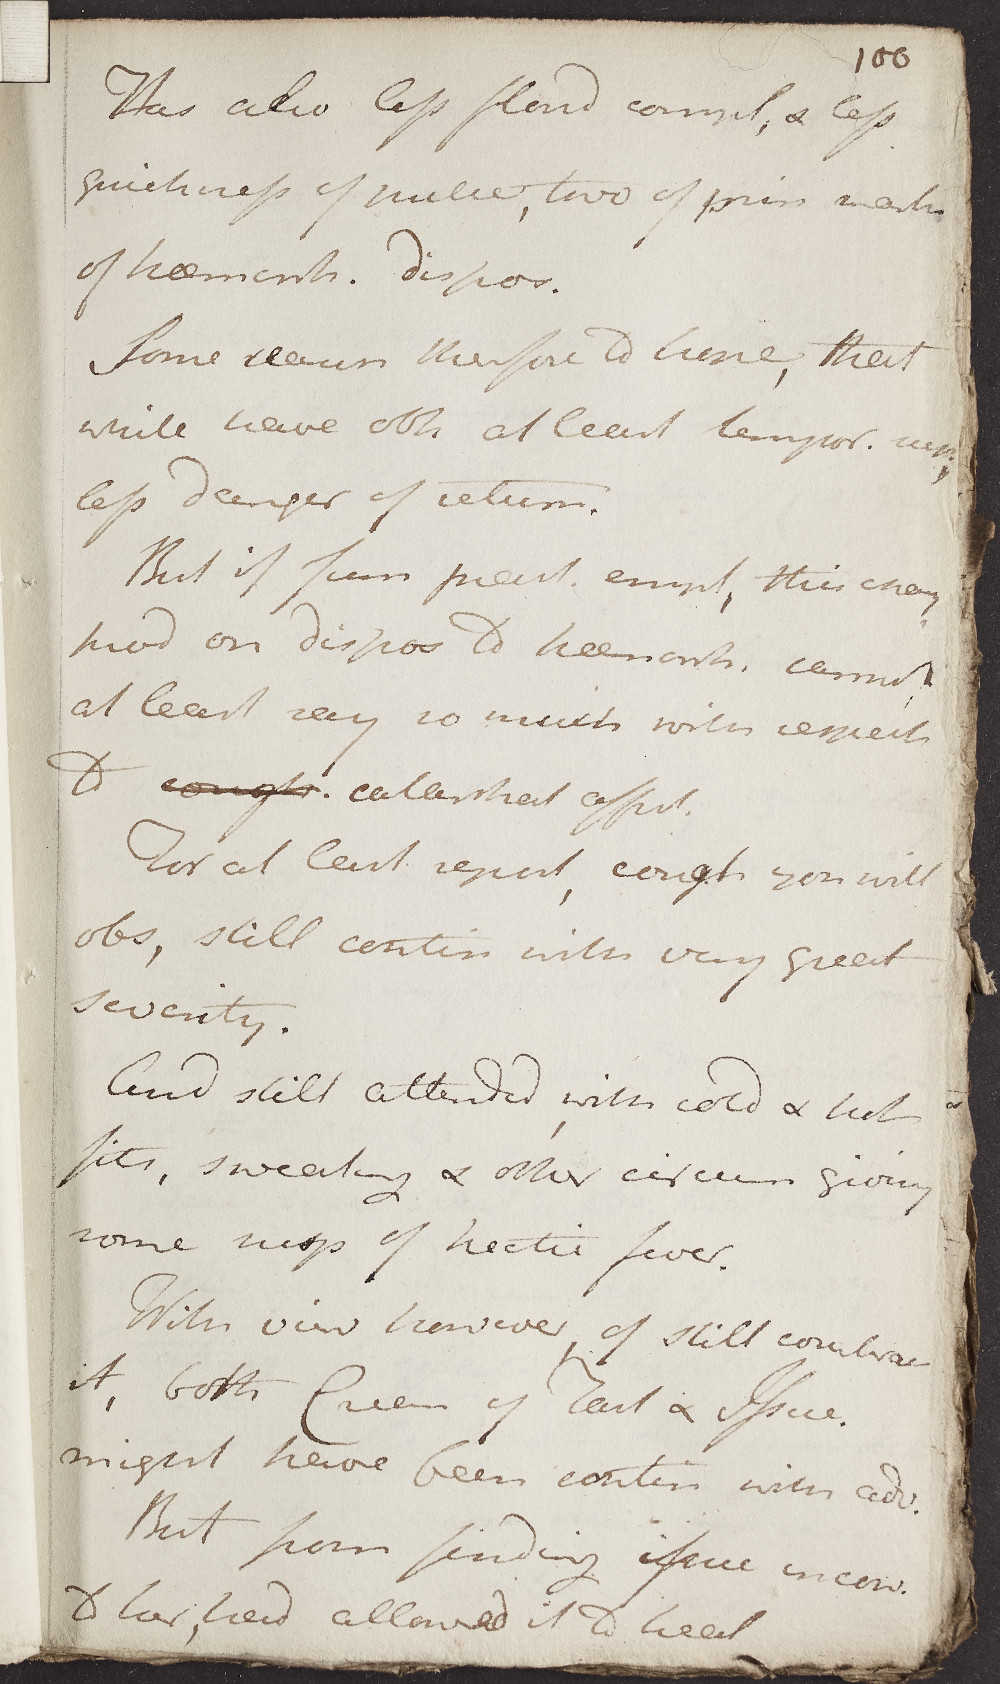 100
Has also less florid compl, & less
quickness of pulse, two of prin marks
of hœmorrh. dispos.
Some reason therefore to hope, that
while have obt at least tempor. susp,
less danger of return.
But if from pract. empl, this chang
prod on dispos to hœmorrh. cannot
at least say so much with respect
to cough. catarrhal affect.
For at last report, cough you will
obs, still contin with very great
severity.
And still attended, with cold & hot
fits, sweating & other circum giving
some susp of hectic fever.
With view however, of still combat
it, both Cream of Tart & Issue.
might have been contin with adv.
But from finding issue incon.
to her, had allowed it to heal